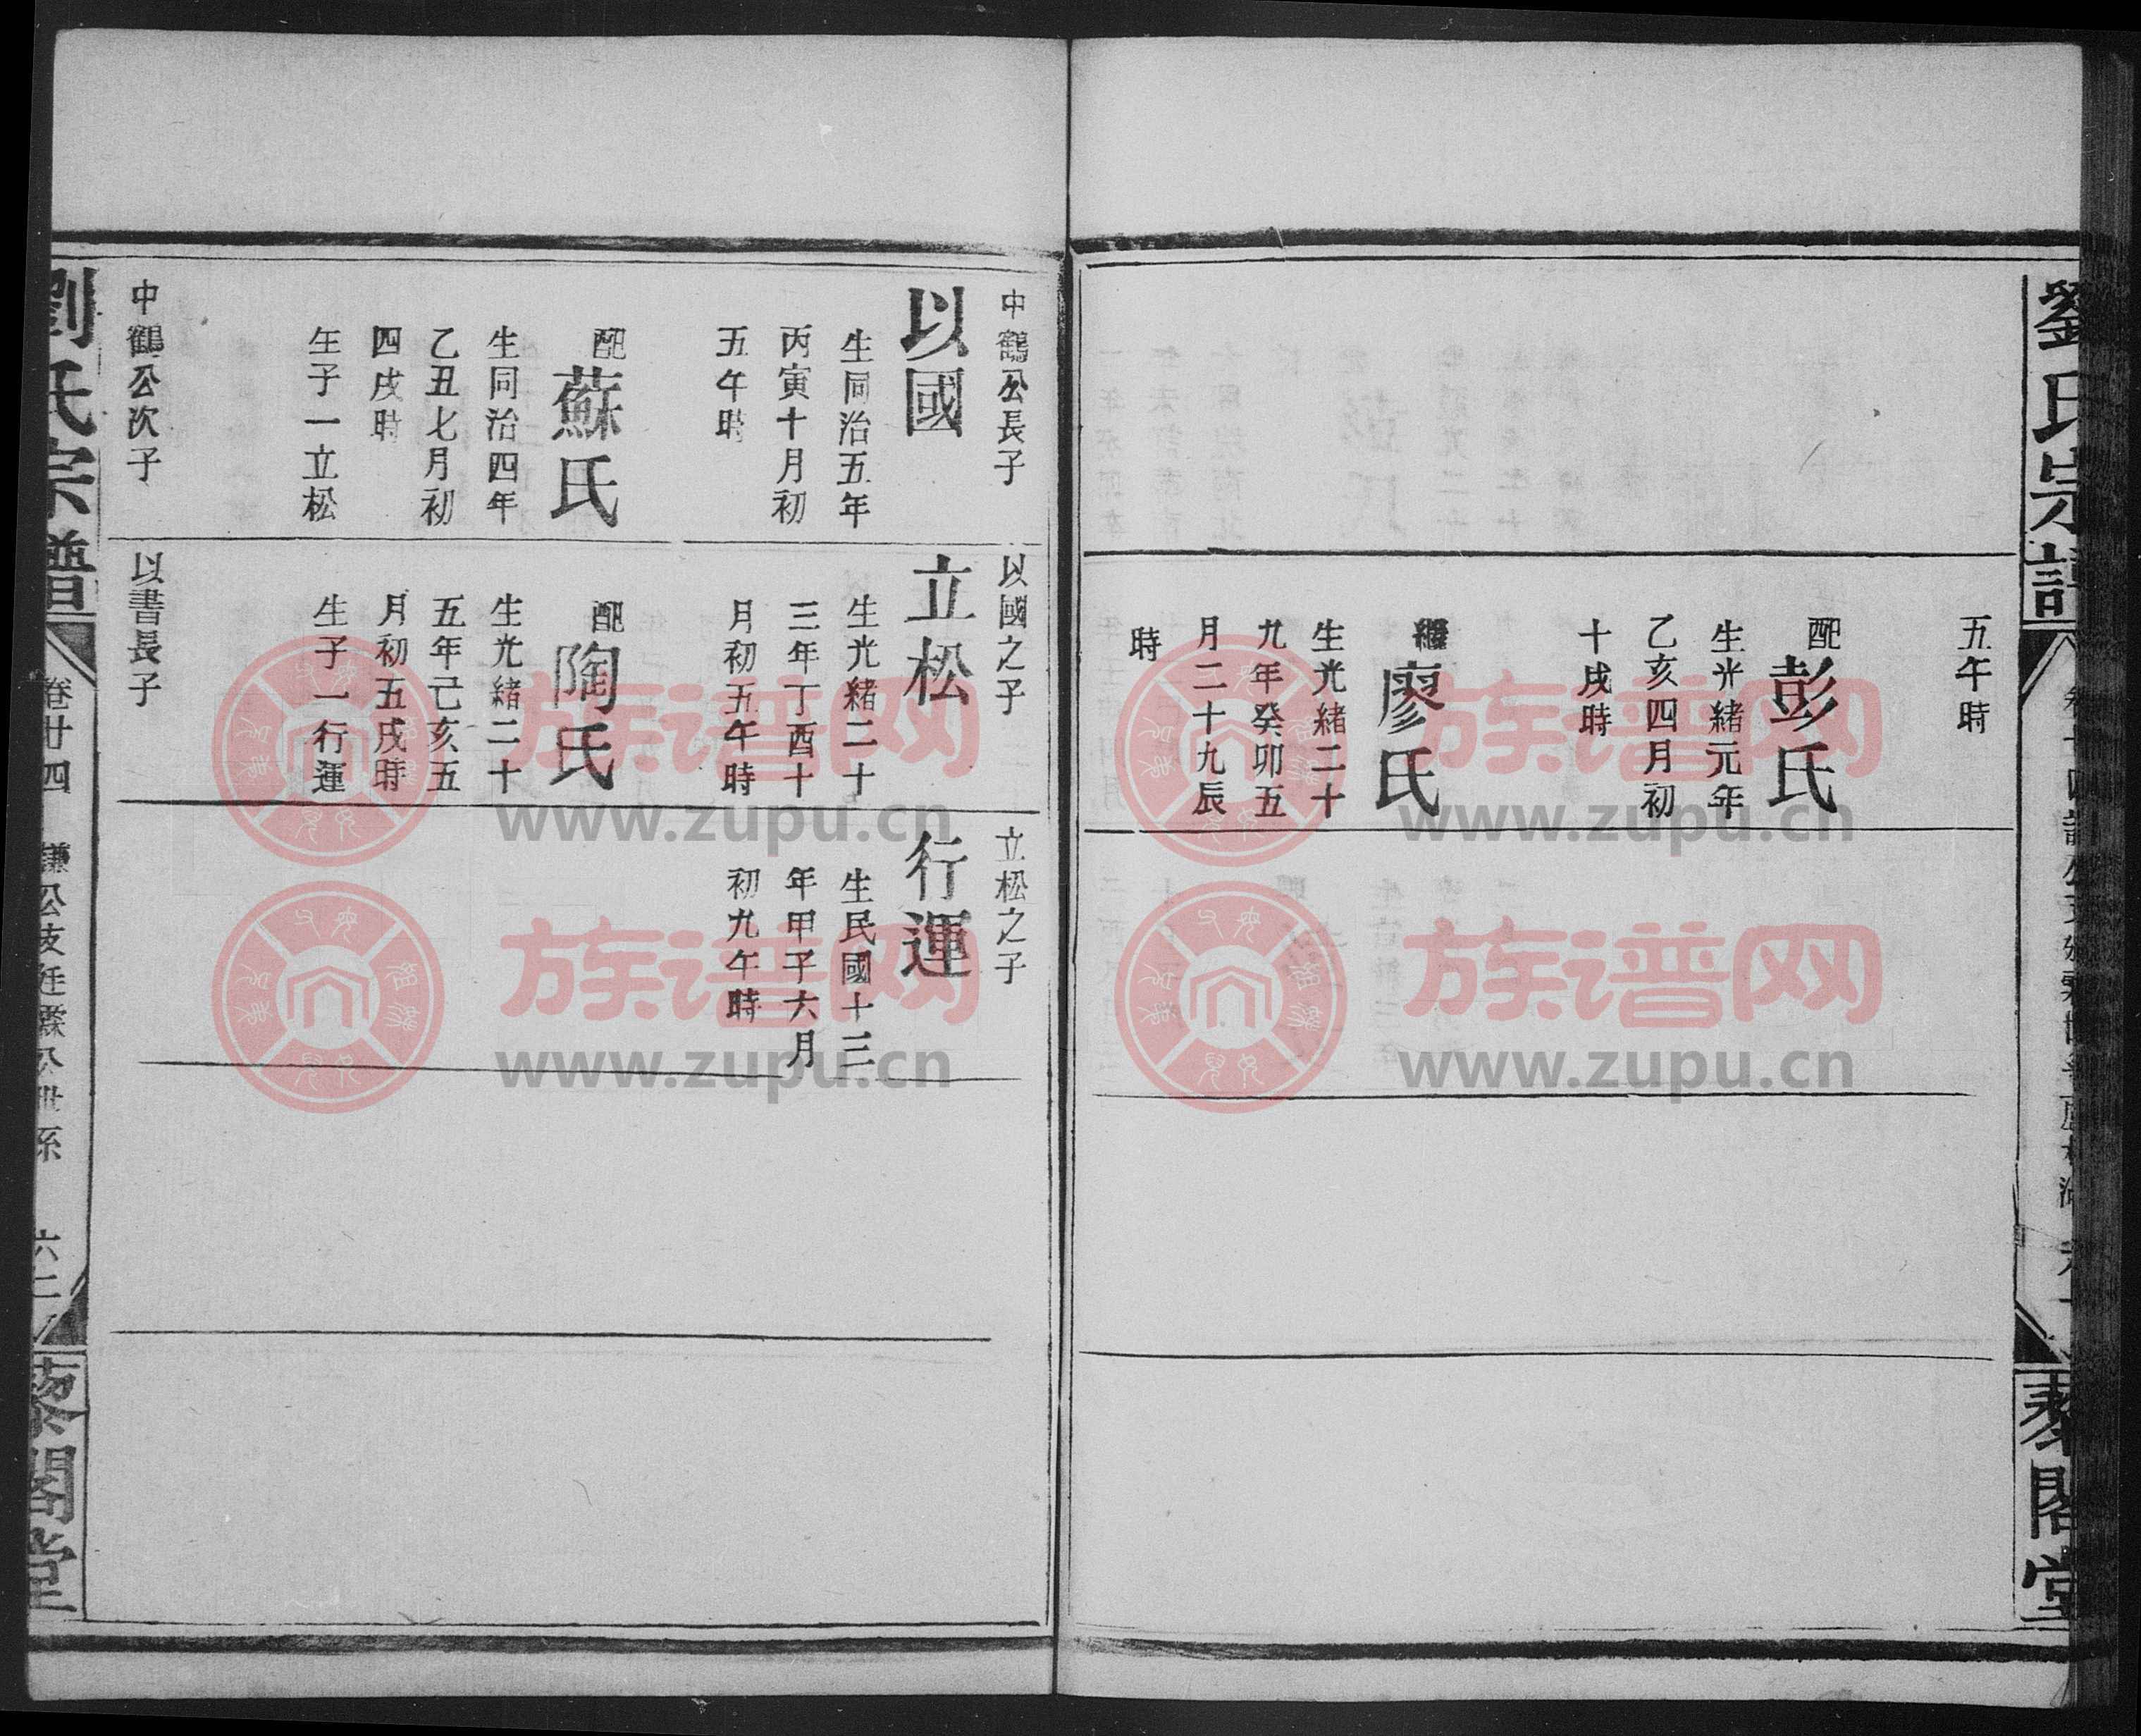 劉氏宗譜
藜閣堂
五午時
配彭氏
生光緒元年
乙亥四月初
十戌時
繼廖氏
生光緒二十
九年癸卯五
月二十九辰
時
中鶴公長子
以國
生同治五年
丙寅十月初
五午時
配蘇氏
生同治四年
乙丑七月初
四戌時
生子一立松
中鶴公次子
以國之子
立松
生光緒二十
三年丁酉十
月初五午時
配陶氏
生光緒二十
五年己亥五
月初五戌時
生子一行運
以書長子
立松之子
行運
生民國十三
年甲子六月
初九午時
劉氏宗譜
卷廿四 謙公支廷霖公世系 六二
藜閣堂
族谱网
www.zupu.cn
族谱网
www.zupu.cn
族谱网
www.zupu.cn
族谱网
www.zupu.cn